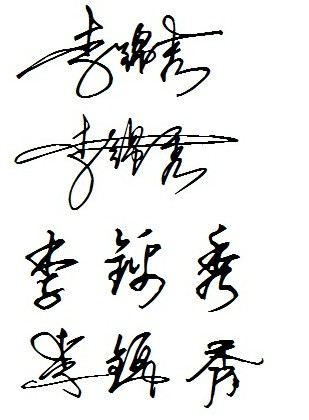 李锦秀
李锦秀
李锦秀
李锦秀